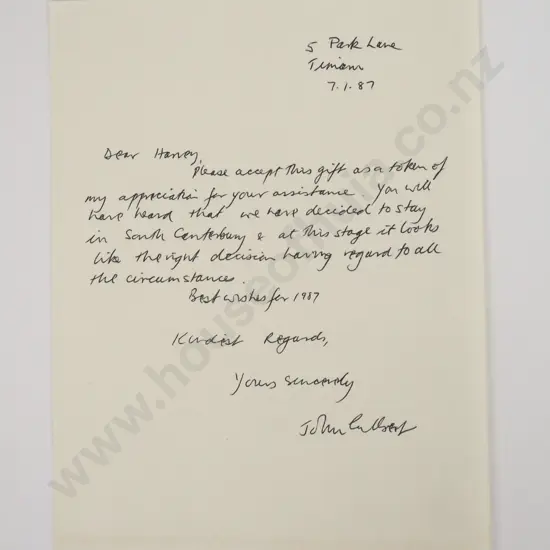 5 Park Lane
Timaru
7.1.87
Dear Harvey,
Please accept this gift as a token of
my appreciation for your assistance. You will
have heard that we have decided to stay
in South Canterbury & at this stage it looks
like the right decision having regard to all
the circumstances.
Best wishes for 1987
Kindest Regards,
Yours sincerely
John
www.houseofhulia.co.nz